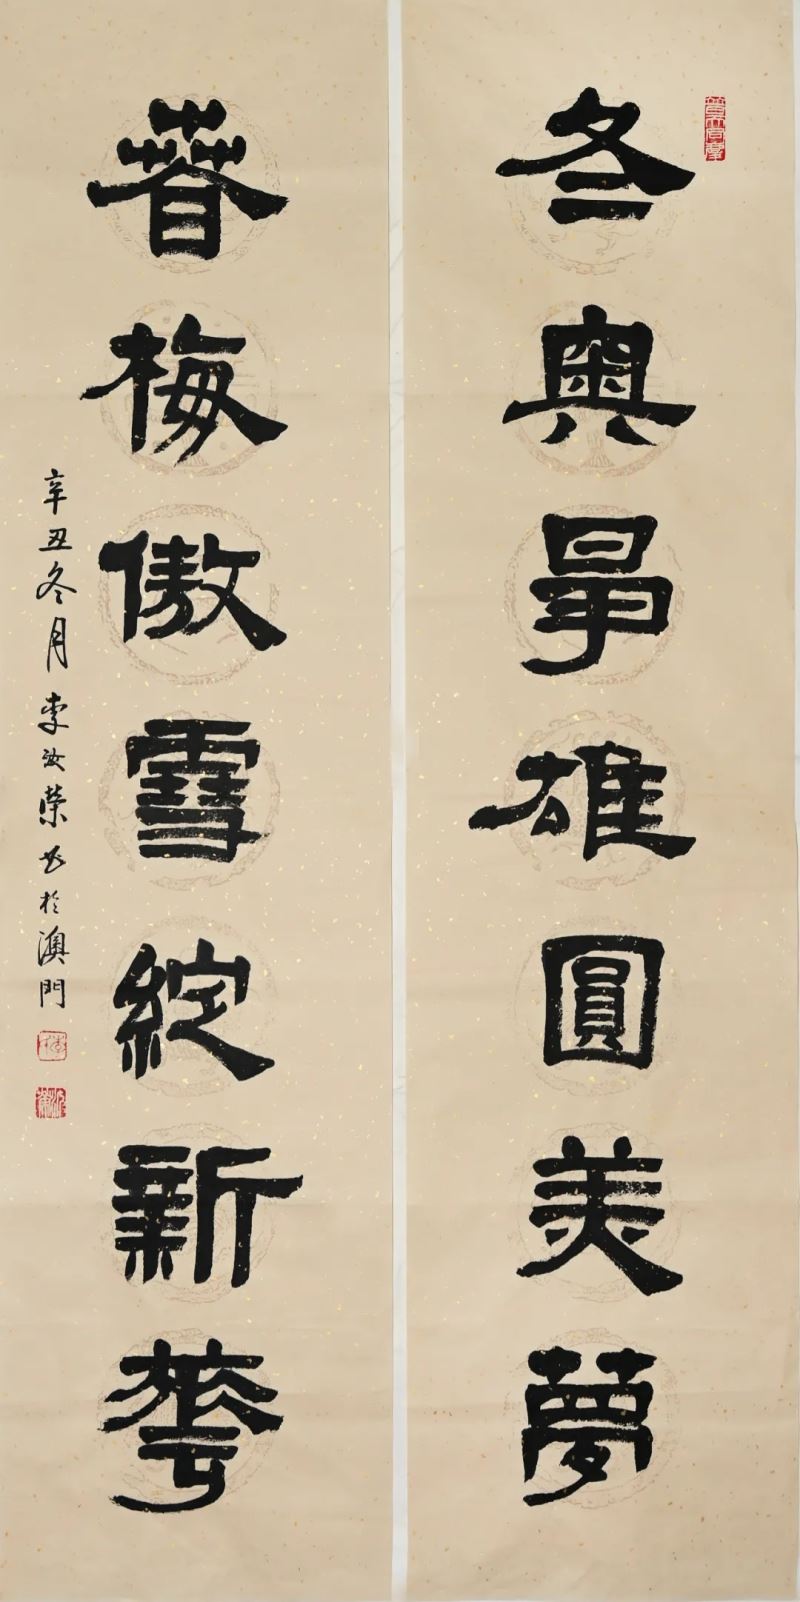 冬奧爭雄圓美夢
春梅傲雪綻新華
辛丑冬月李汝榮书於澳門